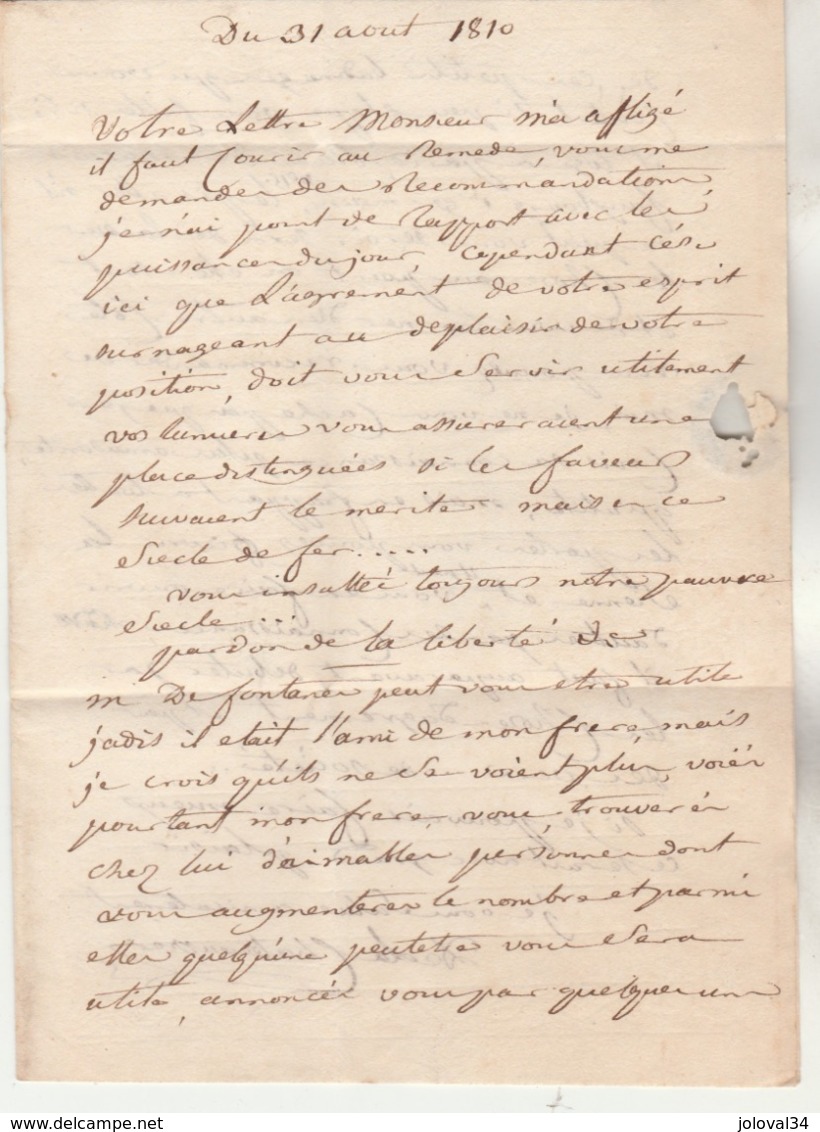 Du 31 aout 1810
Votre Lettre Monsieur m'a affligé
il faut Courir au Remede, vous me
demandes des Recommandations
je n'ai point de Rapport avec les
puissances du jour cependant c'est
ici que L'agrement de votre esprit
surnageant au deplaisir de votre
position, doit vous Servir utilement
vos lumieres vous assureraient une
place distinguées si les faveurs
suivaient le merite mais en ce
Siecle de fer.....
vous insultés toujours notre pauvre
Siecle...
pardon de la liberté
m De fontanes peut vous etre utile
jadis il etait l'ami de mon frere mais
je crois qu'ils ne Se voient plus, voiés
pourtant mon frere, vous trouverés
chez lui d'aimables personnes dont
vous augmenteres le nombre et parmi
elles quelqu'une peutetre vous Sera
utile, annoncés vous par quelques uns
delcampe.net
joloval34